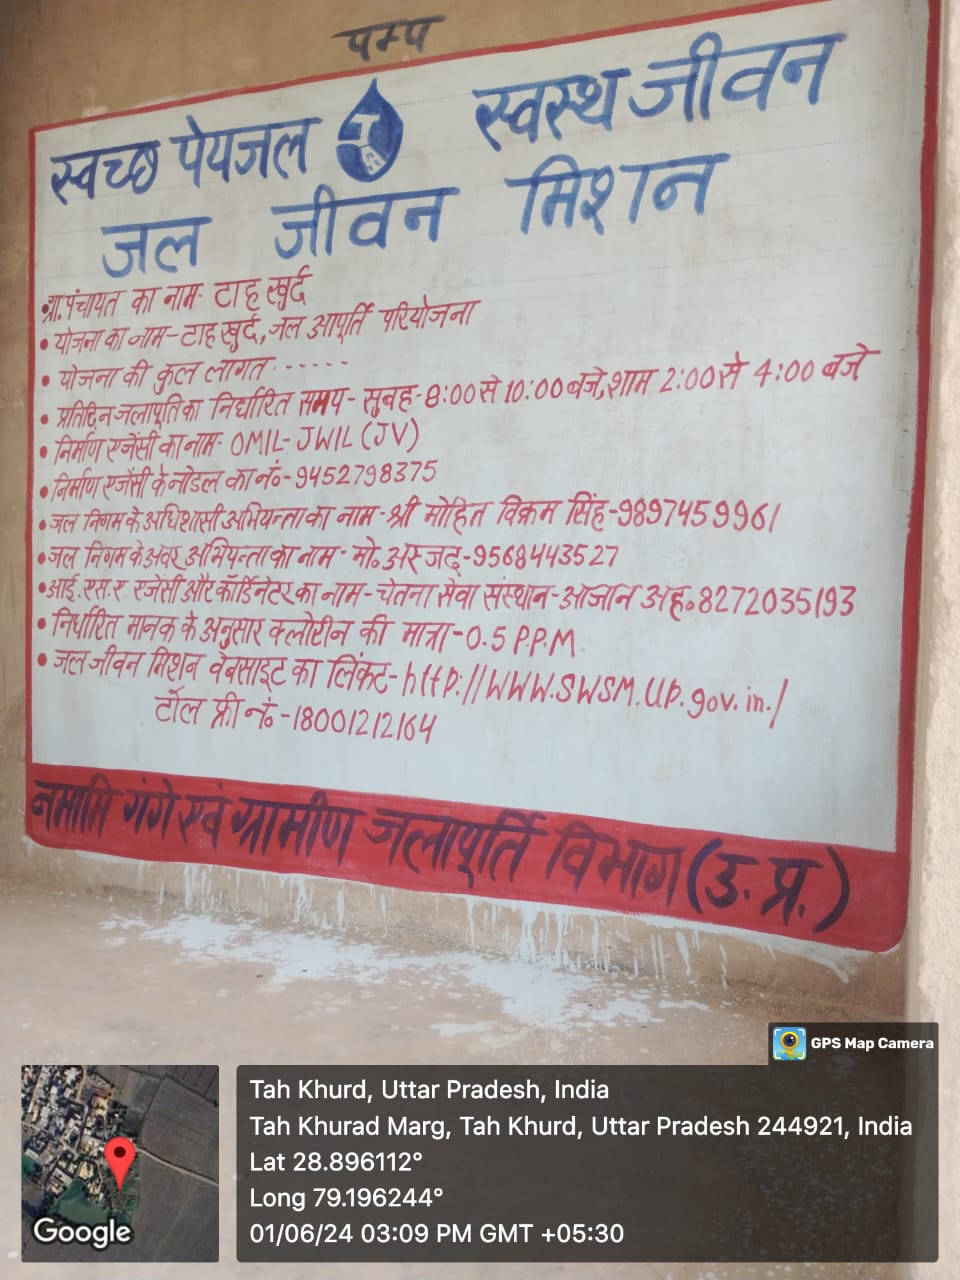 पम्प
स्वच्छ पेयजल स्वस्थ जीवन
जल जीवन मिशन
•ग्रा.पंचायत का नाम- टाह खुर्द
• योजना का नाम-टाह खुर्द, जल आपूर्ति परियोजना
• योजना की कुल लागत ......
• प्रतिदिन जलापूर्ति का निर्धारित समय- सुबह-8:00 से 10:00 बजे, शाम 2:00 से 4:00 बजे
• निर्माण एजेंसी का नाम- OMIL-JWIL (JV)
• निर्माण एजेंसी के नोडल का नं०-9452798375
•जल निगम के अधिशासी अभियन्ता का नाम-श्री मोहित विक्रम सिंह-9897459961
•जल निगम के अवर अभियन्ता का नाम- मो० अरजद-9568443527
•आई.एस.ए. एजेंसी और कॉर्डिनेटर का नाम-चेतना सेवा संस्थान-आजान अह०8272035193
• निर्धारित मानक के अनुसार क्लोरीन की मात्रा-0.5 P.P.M.
• जल जीवन मिशन वेबसाइट का लिंकट-http://WWW.SWSM.UP.gov.in./
टोल फ्री नं०-18001212164
नमामि गंगे एवं ग्रामीण जलापूर्ति विभाग (उ.प्र.)
GPS Map Camera
Tah Khurd, Uttar Pradesh, India
Tah Khurad Marg, Tah Khurd, Uttar Pradesh 244921, India
Lat 28.896112°
Long 79.196244°
01/06/24 03:09 PM GMT +05:30
Google